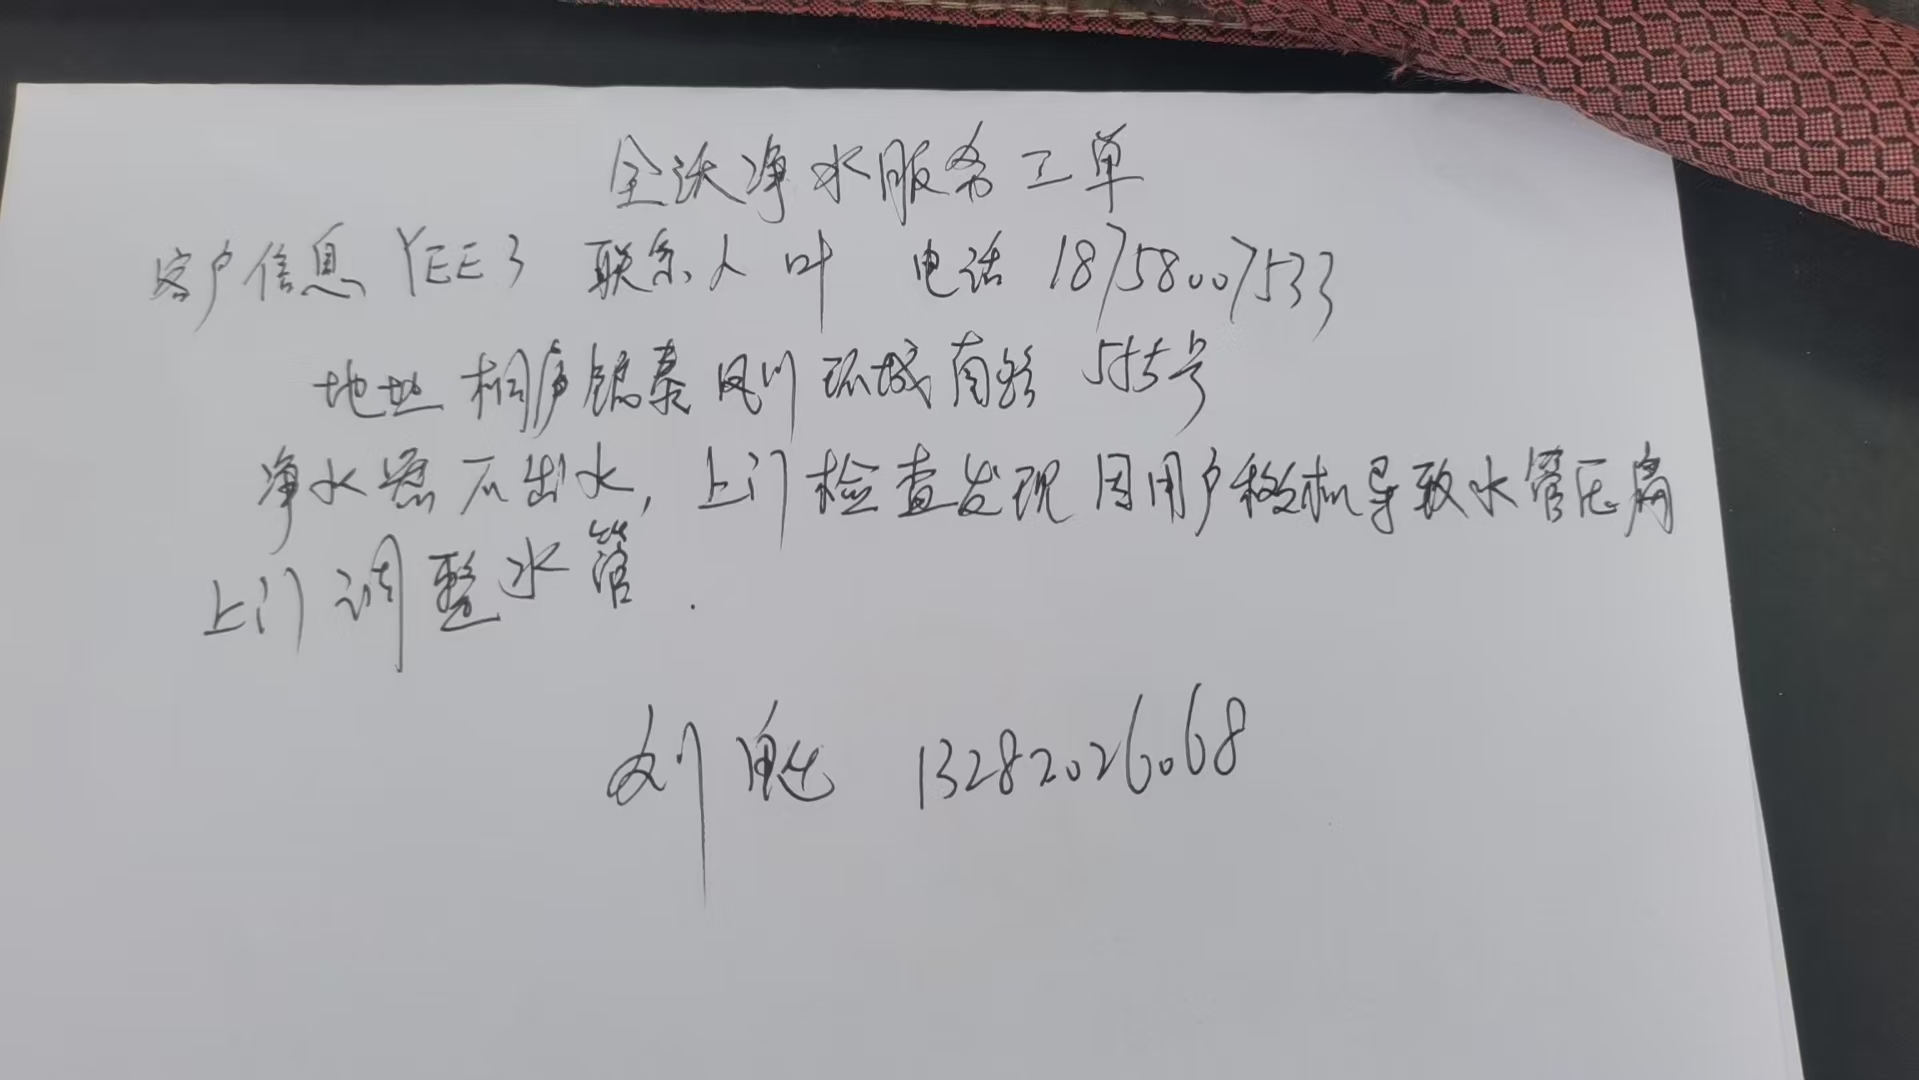 全沃净水服务工单
客户信息 YEE3 联系人 叶 电话 18758007533
地址 桐庐 凤川 环城南路 595号
净水器不出水, 上门检查发现因用户移机导致水管压扁
上门调整水管.
刘魁 13282026068